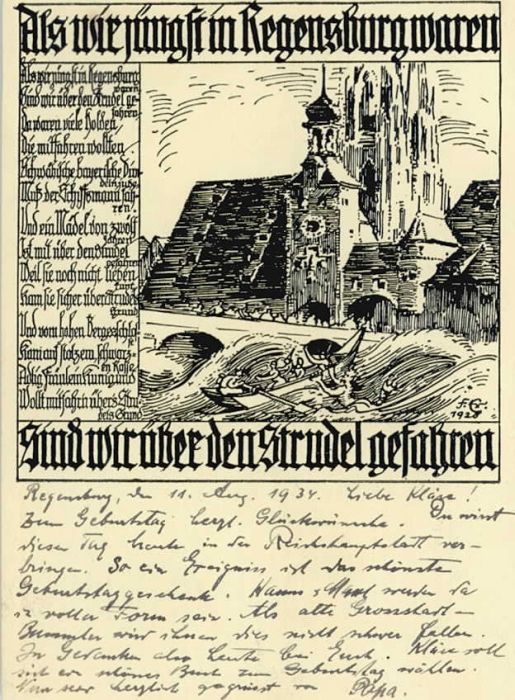 Als wir jüngst in Regensburg waren
Als wir jüngst in Regensburg
waren
Sind wir über den Strudel ge-
fahren
Da waren viele Holden
Die mitfahren wollten
Schwäbische bayerische Dirn
Muß der Schiffsmann fah-
ren
Und ein Mädel von zwölf
Jahren
Ist mit über den Strudel
gefahren
Weil sie noch nicht lieben
kunt
Kam sie sicher über Strudels
Grund
Und vom hohen Bergesschlo-
Kam auf stolzem, schwarz-
en Rosse
Adlig Fräulein Kunigund
Wollt mitfahrn übers Stru
dels Grund
1927
Sind wir über den Strudel gefahren
Regensburg, den 11. Aug. 1934. Liebe Kläre!
Zum Geburtstag herzl. Glückwünsche. Du wirst
diesen Tag heute in der Reichshauptstadt ver-
bringen. So ein Ereigniss ist das schönste
Geburtstaggeschenk. Hanns werden da
in voller Form sein. Als alte Grossstadt-
Bummler wird ihnen dies nicht schwer fallen.
In Gedanken also heute bei Euch. Kläre soll
sich ein schönes Buch zum Geburtstag wählen.
Nun sei herzlich gegrüsst von